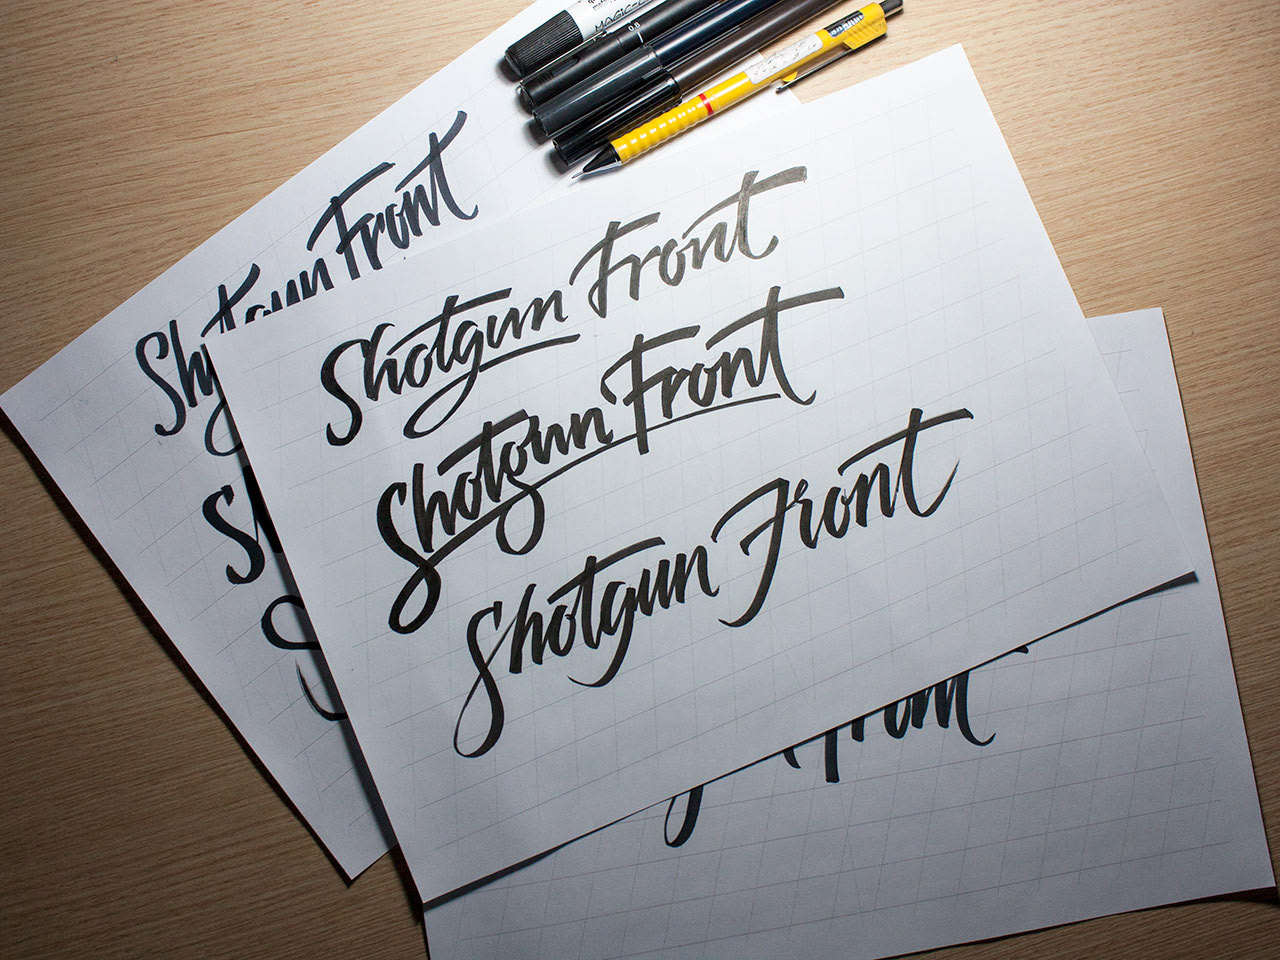 MAGIC
0.8
Shotgun Front
Shotgun Front
Shotgun Front
Shotgun Front
Front